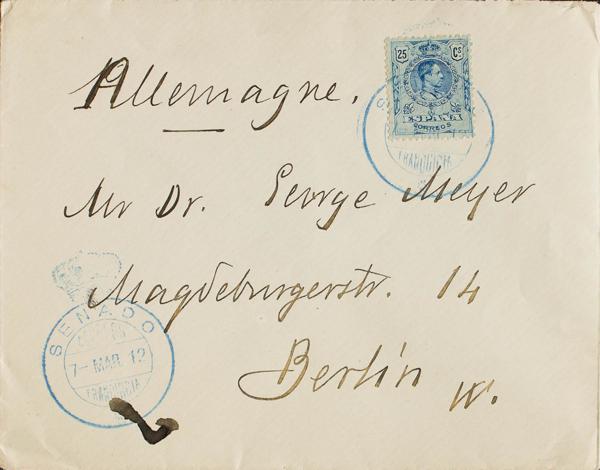 Allemagne.
25 Cs
ESPAÑA
CORREOS
FRANQUICIA
Mr Dr. George Meyer
Magdeburgerstr. 14
SENADO
7- MAR. 12
FRANQUICIA
Berlin W.